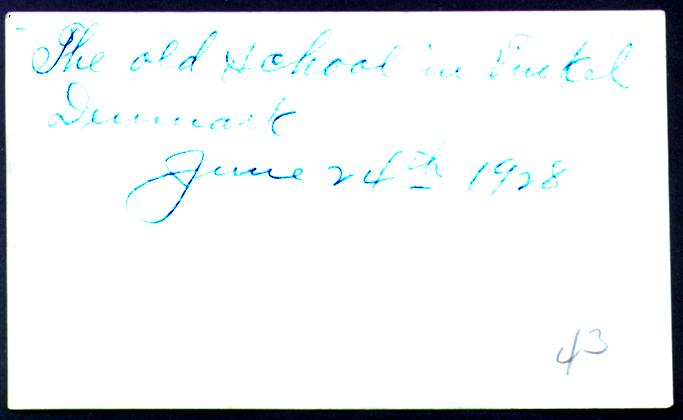 The old school in
Denmark
June 24th 1928
43